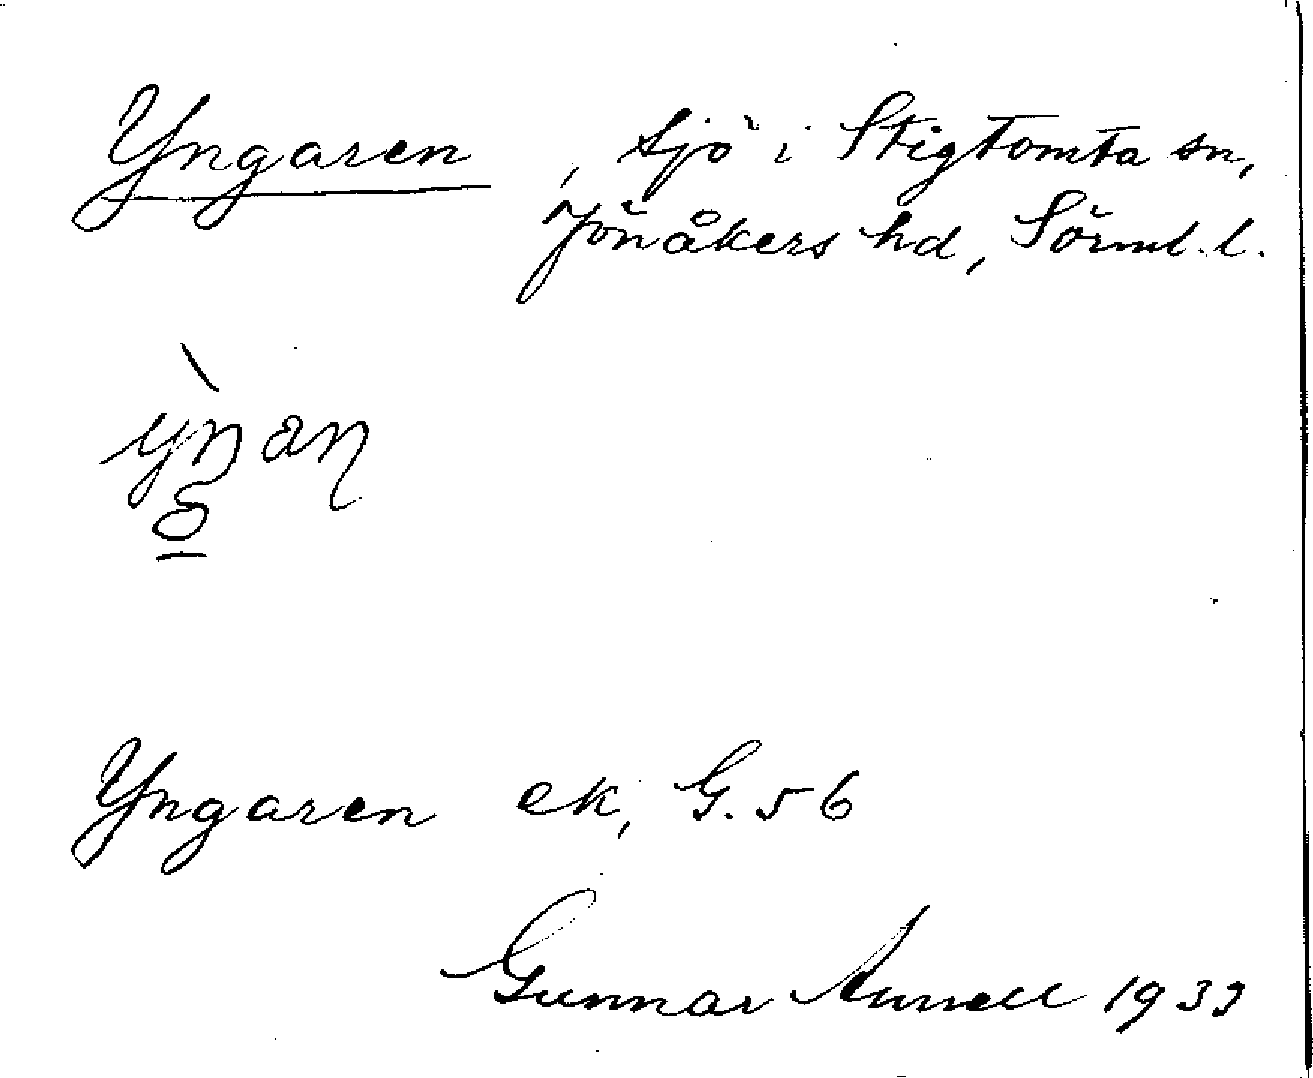 Yngaren, sjö i Stigtomta sn,
Jönåkers hd, Sörml. l.
Yngaren ek, G. 56
Gunnar Aurell 1933